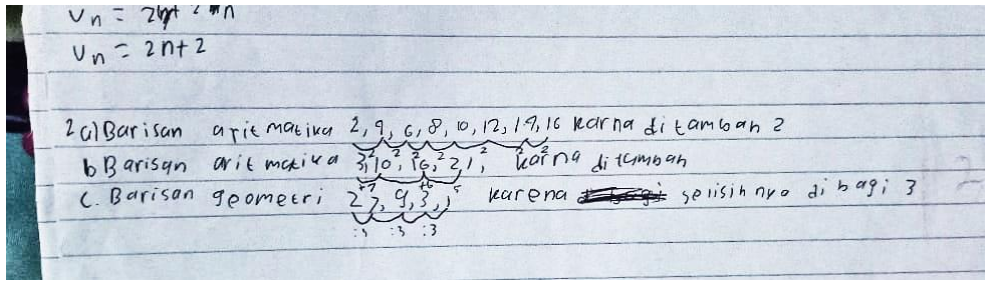 Un = 2n
Un = 2n+2
2a) Barisan aritmatika 2, 4, 6, 8, 10, 12, 14, 16 karna ditambah 2
2 2 2 2 2 2
b Barisan aritmatika 3, 10, 16, 21, karna ditambah
+7 +6 5
c. Barisan geometri 27, 9, 3, 1 karena selisihnya dibagi 3
:3 :3 :3